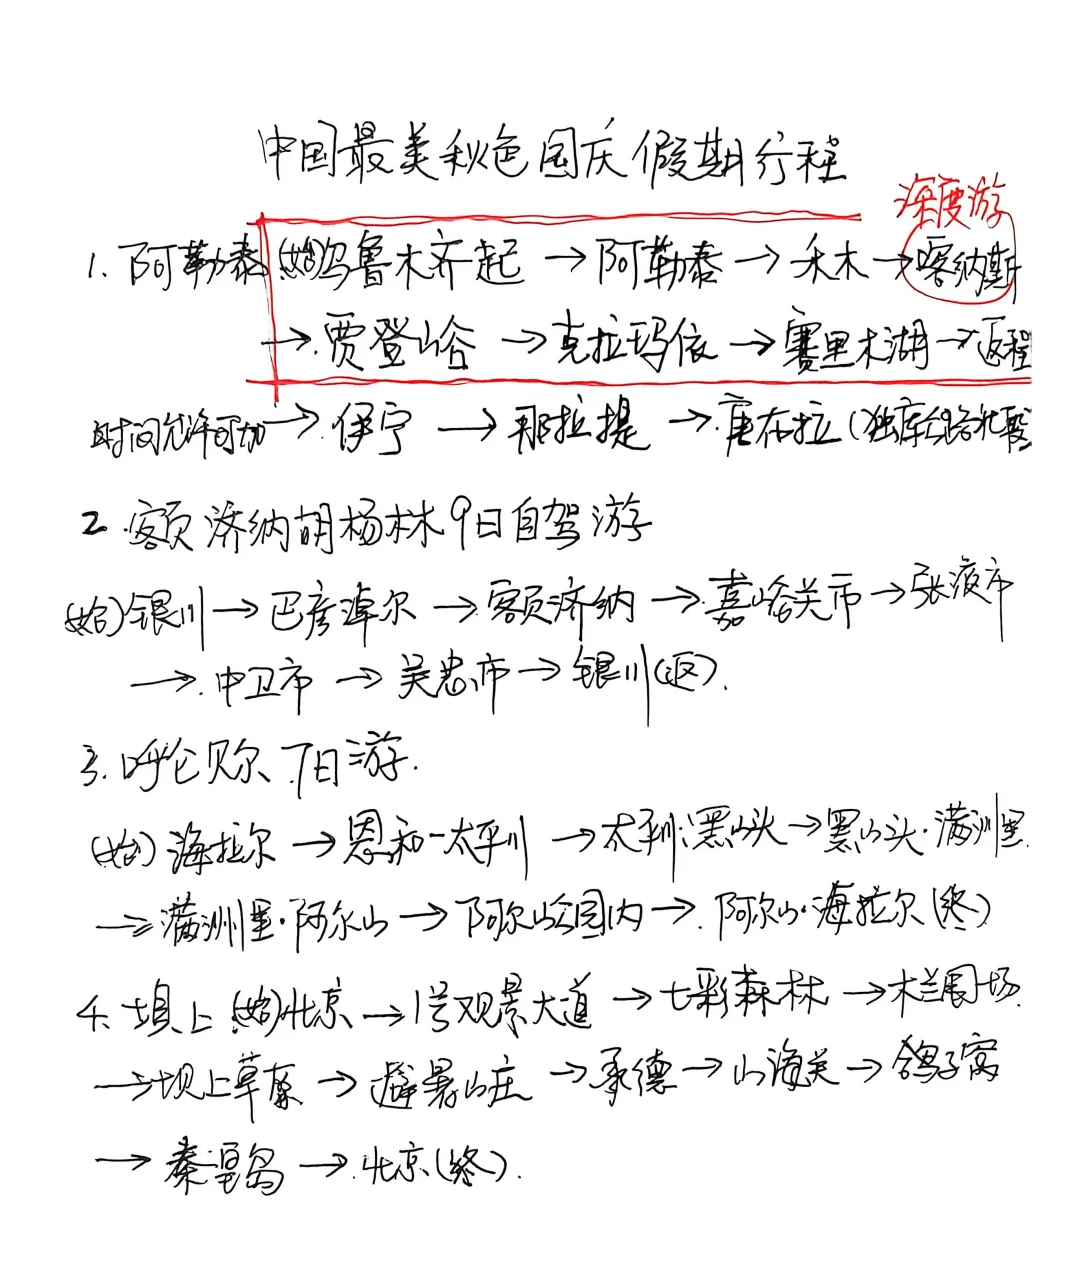 中国最美秋色国庆假期行程
深度游
1. 阿勒泰 (始)乌鲁木齐起 → 阿勒泰 → 禾木 → 喀纳斯
→ 贾登峪 → 克拉玛依 → 赛里木湖 → 返程
时间允许可加 → 伊宁 → 那拉提 → 唐布拉 (独库公路北段
2. 额济纳胡杨林9日自驾游
(始)银川 → 巴彦淖尔 → 额济纳 → 嘉峪关市 → 张液市
→ 中卫市 → 吴忠市 → 银川(返).
3. 呼伦贝尔 7日游.
(始) 海拉尔 → 恩和-太平川 → 太平川·黑山头 → 黑山头·满洲里
→ 满洲里·阿尔山 → 阿尔山公园内 → 阿尔山·海拉尔(终)
4. 坝上 (始)北京 → 1号观景大道 → 七彩森林 → 木兰围场
→ 坝上草原 → 避暑山庄 → 承德 → 山海关 → 鸽子窝
→ 秦皇岛 → 北京(终).